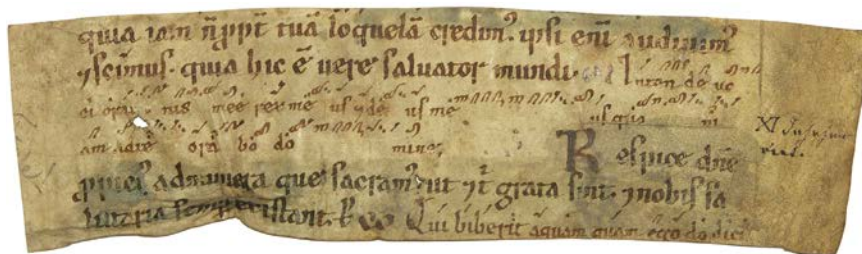 quia iam n̄ ppt̄ tuā loquelā credimꝰ. ipsi enī audiuimꝰ
⁊ scimus. quia hic ē uere saluator mundi Inten de uo
ci ora nis mee rex me us ⁊ de us me us quo ni
am ad te ora bo do mine,
Respice dn̄e
ppiciꝰ ad munera que sacramꝰ. ut ⁊ t̄ grata sint. ⁊ nobis sa
lutaria semper existant.
Qui biberit aquam quam ego do dicit
XI